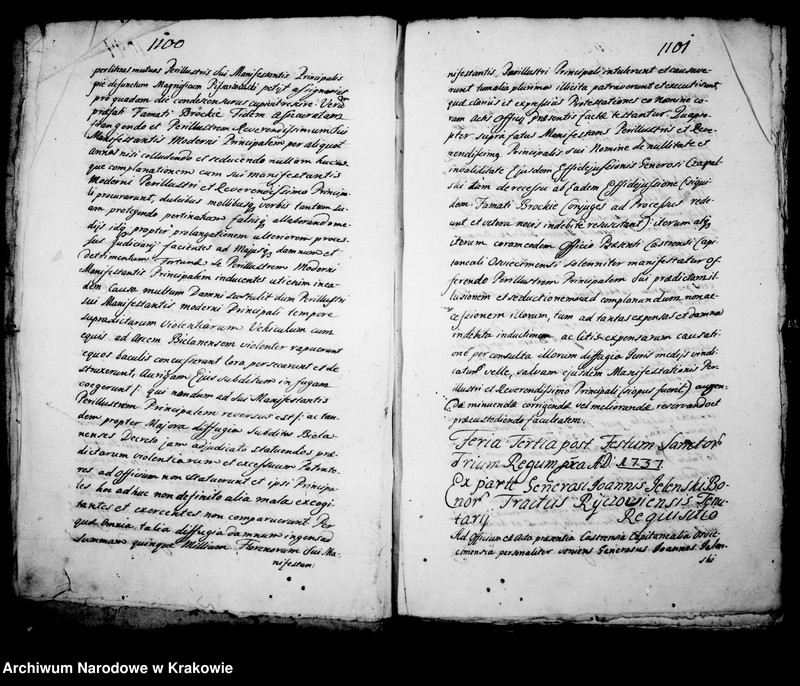 1100
per literas mutuas Perillustris Sui Manifestantis Principalis
pie defunctum Magnificum petit assignari et
pro quadam die condescensurus
præfati Famati Brockie Fidem assecuratam
tangendo et Perillustrem Reverendissimum Sui
Manifestantis Moderni Principalem per aliquot
annos nisi colludendo et seducendo nullam hucus
que complanationem cum sui manifestantis
Moderni Perillustri et Reverendissimo Principa
li procurarunt, dulcibus mollibusq verbis tantum su
am protegendo pertinaciam falsisq allaborando me
dijs idq propter prolongationem ulteriorem proces
sus Judiciarij faciendo ad Majusq damnum et
detrimentum Fortunæ Perillustrem Moderni
Manifestantis Principalem inducentes uti enim in ea
dem Causa multum Damni sustulit dum Perillustri
sui Manifestantis moderni Principali tempore
supradictarum violentiarum Vehiculum cum
equis ad Arcem Bielanensem violenter rapuerunt
equos baculis concusserunt lora perseccarunt et de
struxerunt, Aurigam Ejus subditum in fugam
coegerunt /: qui nondum ad Sui Manifestantis
Perillustrem Principalem reversus est :/ ac tan
dem propter Majora diffugia Subditos Biela
nenses Decreto jam adjudicato statuendos præ
dictarum violentiarum et excessuum Patrato
res ad Officium non statuerunt et ipsi Principa
les hoc adhuc non definito alia mala excogi
tantes et exercentes non comparuerunt Per
quæ Omnia talia diffugia damnum ingens ad
summam quinque Millium Florenorum Sui Ma
nifestan:
1101
nifestantis Perillustri Principali intulerunt et causave
runt tum alia plurima illicita patraverunt et executi sunt,
quæ clarius et expressius Protestationes eo Nomine co
ram Actis Officij Præsentis factæ testantur. Quapro
pter supra fatus Manifestans Perillustris et Reve
rendissimi Principalis sui Nomine de nullitate et
invaliditate Ejusdem Effidejussionis Generosi Czapel
ski dum de recessu ab Eadem Effidejussione (siqui
dem Famati Brockie Conjuges ad Processus rede
unt et vetera novis indebite resuscitant) iterum atq
iterum coram eodem Officio Præsenti Castrensi Capi
taneali Osviecimensi solenniter manifestatur of
ferendo Perillustrem Principalem Sui prædictam il
lusionem et seductionem ad complanandum non ac
cessionem illorum, tum ad tantas expensas et damna
indebita inductionem ac litis expensarum causati
one per consulta illorum diffugia Juris medijs vindi
catur velle, salvam ejusdem Manifestationis Per
illustri et Reverendissimo Principali (si opus fuerit) augen
dæ minuendæ corrigendæ vel meliorandæ reservando et
præcustodiendo facultatem.
Feria Tertia post Festum Sanctorum
Trium Regum pxa A.D. 1737
Ex parte Generosi Joannis Jelenski Bo
norum Tractus Rijczoviensis Tenu
tarij Requisitio
Ad Officium et Acta præsentia Castrensia Capitanealia Osvie
cimensia personaliter veniens Generosus Joannes Jelen
ski
Archiwum Narodowe w Krakowie